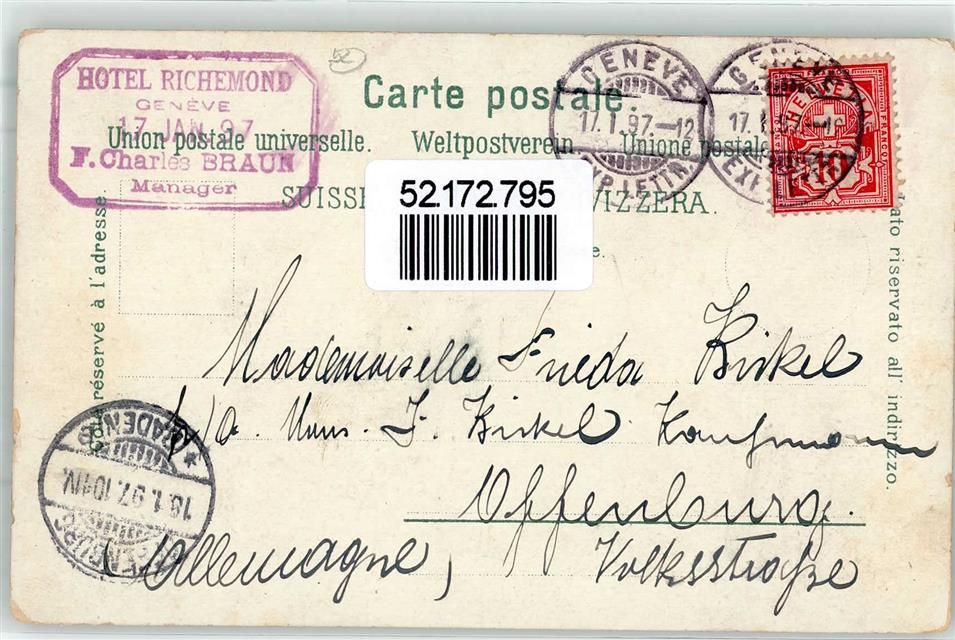 HOTEL RICHEMOND
GENÈVE
17 JAN 97
F. Charles BRAUN
Manager
52
Carte postale.
Union postale universelle. Weltpostverein. Unione postale
SUISSE VIZZERA.
e.
GENÈVE
17.I.97.-12
EXP. LETTR.
GENÈVE
17.I.97.-12
EXP.
HELVETIA
FRANCO
10
52.172.795
Côté réservé à l'adresse
lato riservato all' indirizzo.
Mademoiselle Frieda Birkel
J. Birkel Kaufmann
Offenburg.
(Allemagne)
Volksstraße
BADEN
18.1.97.10-11V.
OFFENBURG